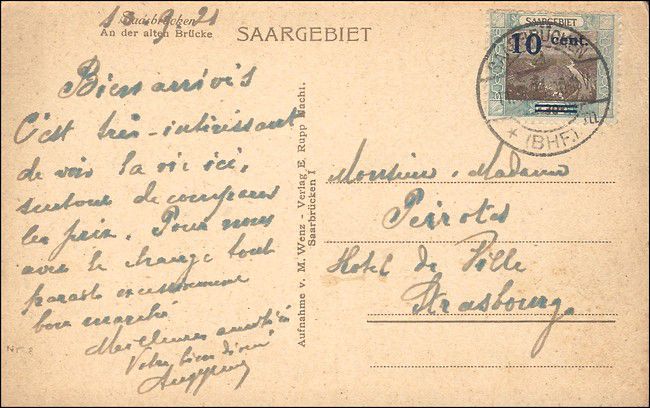 18.9.21
Saarbrücken
An der alten Brücke
SAARGEBIET
SAARGEBIET
10 cent.
SAARBRÜCKEN
★ (BHF.)
Bien arrivés
C'est très-intéressant
de voir la vie ici,
surtout de comparer
les prix. Pour nous
avec le change tout
parait excessivement
bon marché
Meilleures amitiés
Votre bien
Aufnahme v. M. Wenz - Verlag E. Rupp Nacht.
Saarbrücken I
Monsieur, Madame
Peirotes
Hotel de Ville
Strasbourg.